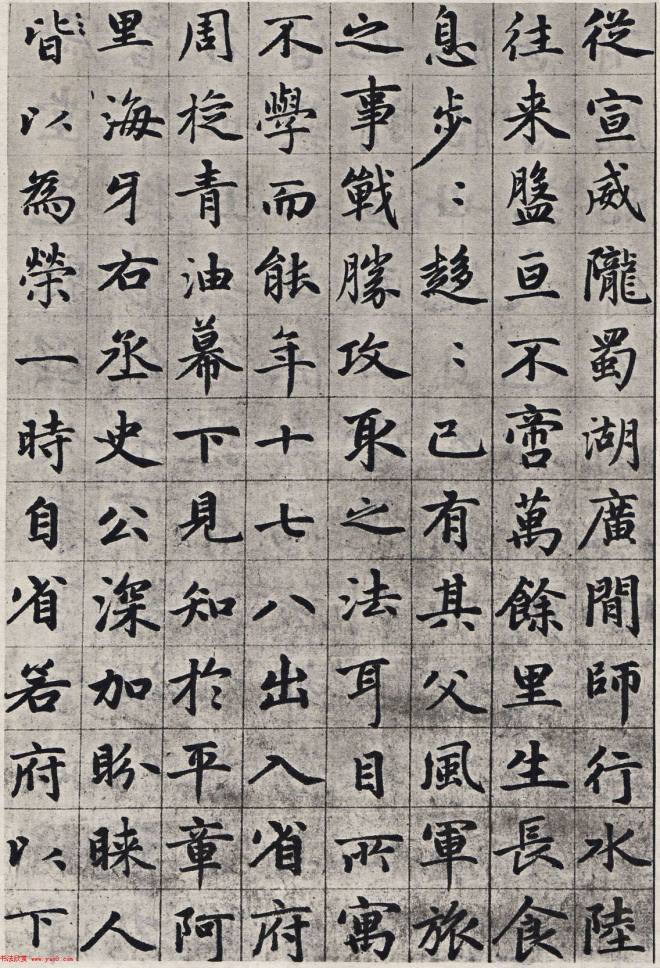 從宣威隴蜀湖廣閒師行水陸
往来盤亘不啻萬餘里生長食
息步〻趍〻已有其父風軍旅
之事戰勝攻取之法耳目所寓
不學而能年十七八出入省府
周旋青油幕下見知於平章阿
里海牙右丞史公深加盼睞人
皆以為榮一時自省若府以下
书法欣赏 www.yac8.com